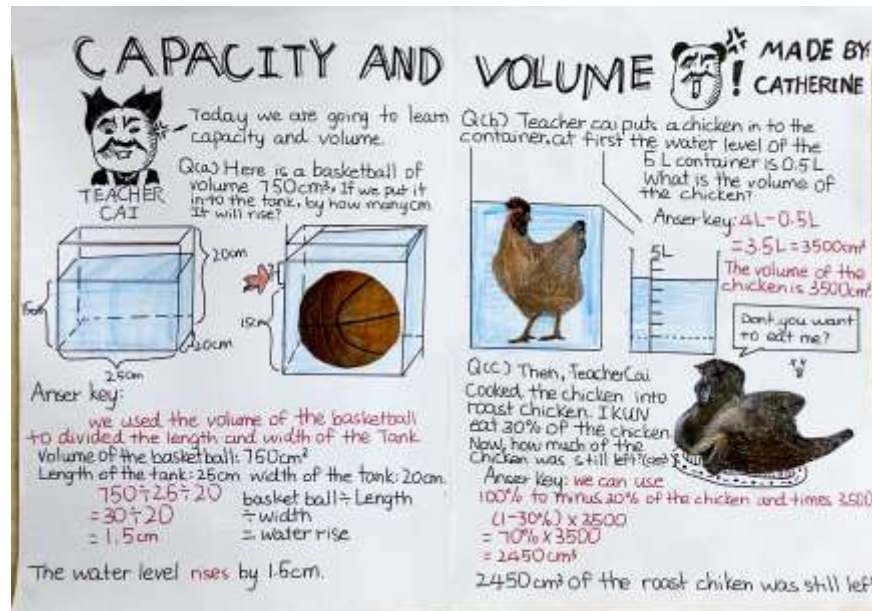 CAPACITY AND VOLUME
MADE BY:
CATHERINE
Today we are going to learn
capacity and volume.
TEACHER
CAI
Q(a) Here is a basketball of
volume 750cm³, If we put it
in to the tank, by how many cm
It will rise?
20cm
15cm
20cm
25cm
15cm
Anser key:
we used the volume of the basketball
to divided the length and width of the Tank
Volume of the basketball: 750cm³
Length of the tank: 25cm width of the tank: 20cm.
750÷25÷20
=30÷20
=1.5cm
basket ball ÷ Length
÷width
= water rise
The water level rises by 1.5cm.
Q(b) Teacher cai puts a chicken in to the
container, at first the water level of the
5L container is 0.5L
What is the volume of
the chicken?
Anser key: 4L-0.5L
=3.5L=3500cm³
The volume of the
chicken is 3500cm³
5L
Dont you want
to eat me?
Q(c) Then, Teacher Cai
Cooked the chicken into
roast chicken. I KUN
eat 30% of the chicken
Now, how much of the
Chicken was still left? (cm³)
Anser key: we can use
100% to minus 30% of the chicken and times 3500
(1-30%) x 3500
= 70% x 3500
= 2450cm³
2450cm³ of the roast chiken was still left